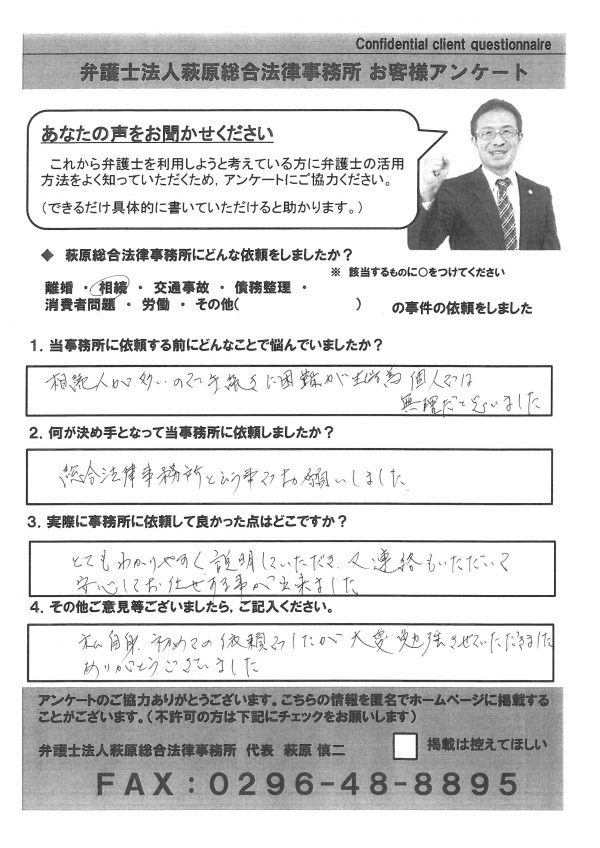 Confidential client questionnaire
弁護士法人萩原総合法律事務所 お客様アンケート
あなたの声をお聞かせください
これから弁護士を利用しようと考えている方に弁護士の活用
方法をよく知っていただくため，アンケートにご協力ください。
（できるだけ具体的に書いていただけると助かります。）
◆ 萩原総合法律事務所にどんな依頼をしましたか？
※ 該当するものに○をつけてください
離婚 ・ 相続 ・ 交通事故 ・ 債務整理 ・
消費者問題 ・ 労働 ・ その他( ) の事件の依頼をしました
1．当事務所に依頼する前にどんなことで悩んでいましたか？
相続人が多いので手続きに困難が生じ為 個人では
無理だと思いました
2．何が決め手となって当事務所に依頼しましたか？
総合法律事務所という事でお願いしました
3．実際に事務所に依頼して良かった点はどこですか？
とてもわかりやすく説明していただき、又連絡もいただいて
安心してお任せする事が出来ました
4．その他ご意見等ございましたら，ご記入ください。
私自身、初めての依頼でしたが大変勉強させていただきました
ありがとうございました
アンケートのご協力ありがとうございます。こちらの情報を匿名でホームページに掲載する
ことがございます。（不許可の方は下記にチェックをお願いします）
弁護士法人萩原総合法律事務所 代表 萩原 慎二
掲載は控えてほしい
FAX：0296-48-8895